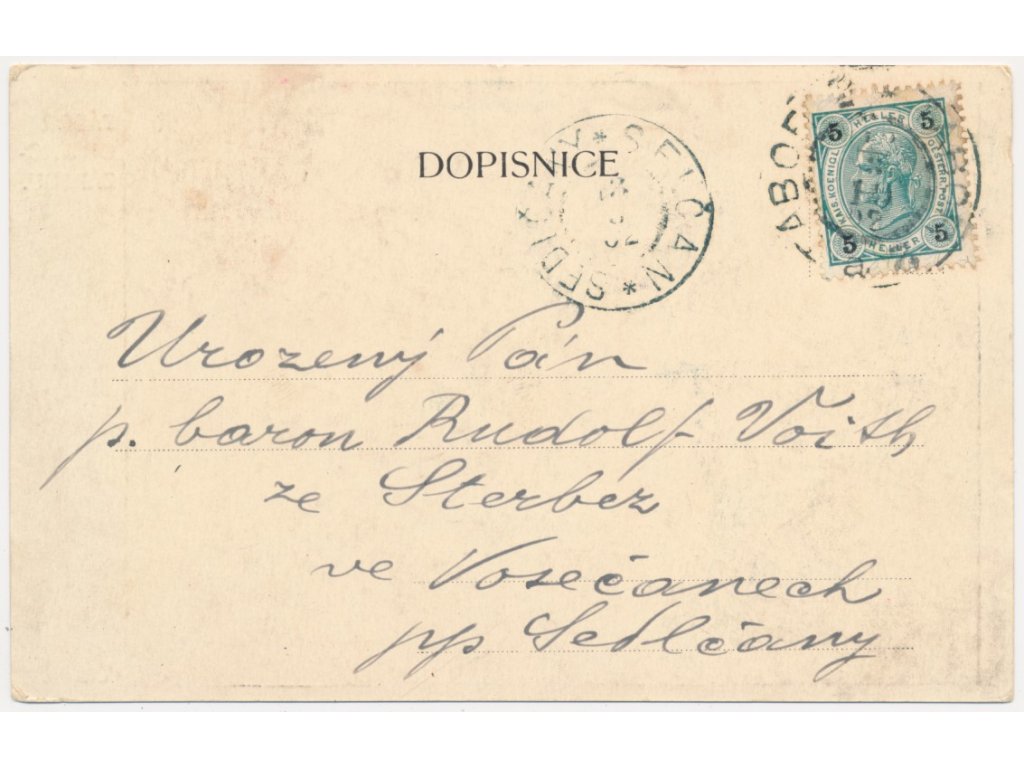 DOPISNICE
SELČAN * SEDLČANY *
TABOR
5 HELLER 5
KAIS. KOENIGL. OESTERR. POST
5 HELLER 5
Urozený Pán
p. baron Rudolf Voith
ze Sterbez
ve Vosečanech
pp Sedlčany